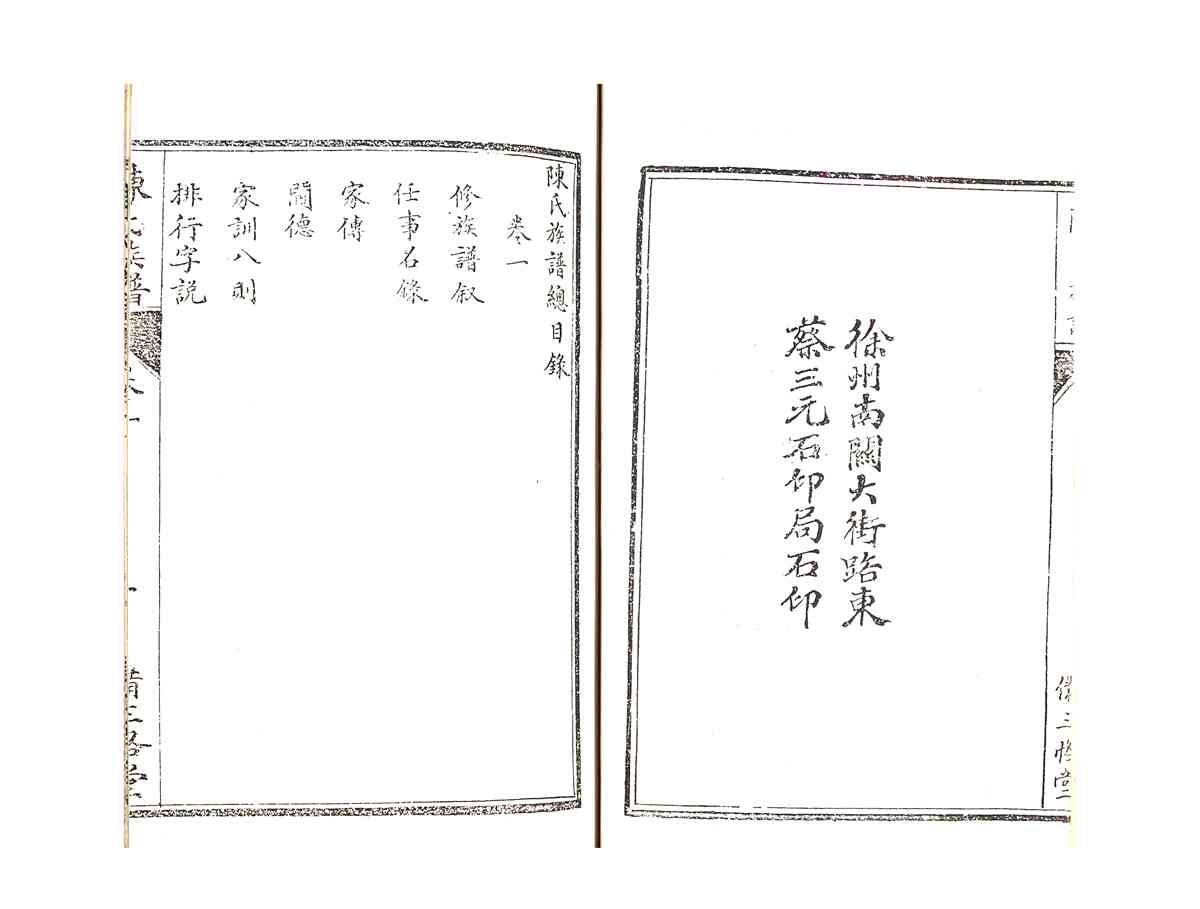 徐州南關大街路東
蔡三元石印局石印
陳氏族譜總目錄
卷一
修族譜叙
任事名錄
家傳
閫德
家訓八則
排行字説
陳氏族譜
卷一
一